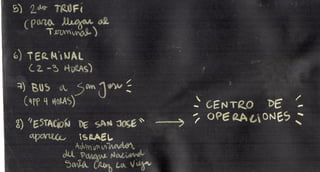 5) 2do TRUFI
(para llegar al
Terminal)
6) TERMINAL
(2-3 HORAS)
7) BUS a San Jose
(APP 4 HORAS)
8) "ESTACIÓN DE SAN JOSE"
aparece ISRAEL
Administrador
del Parque Nacional
Santa Cruz La Vieja
CENTRO DE
OPERACIONES